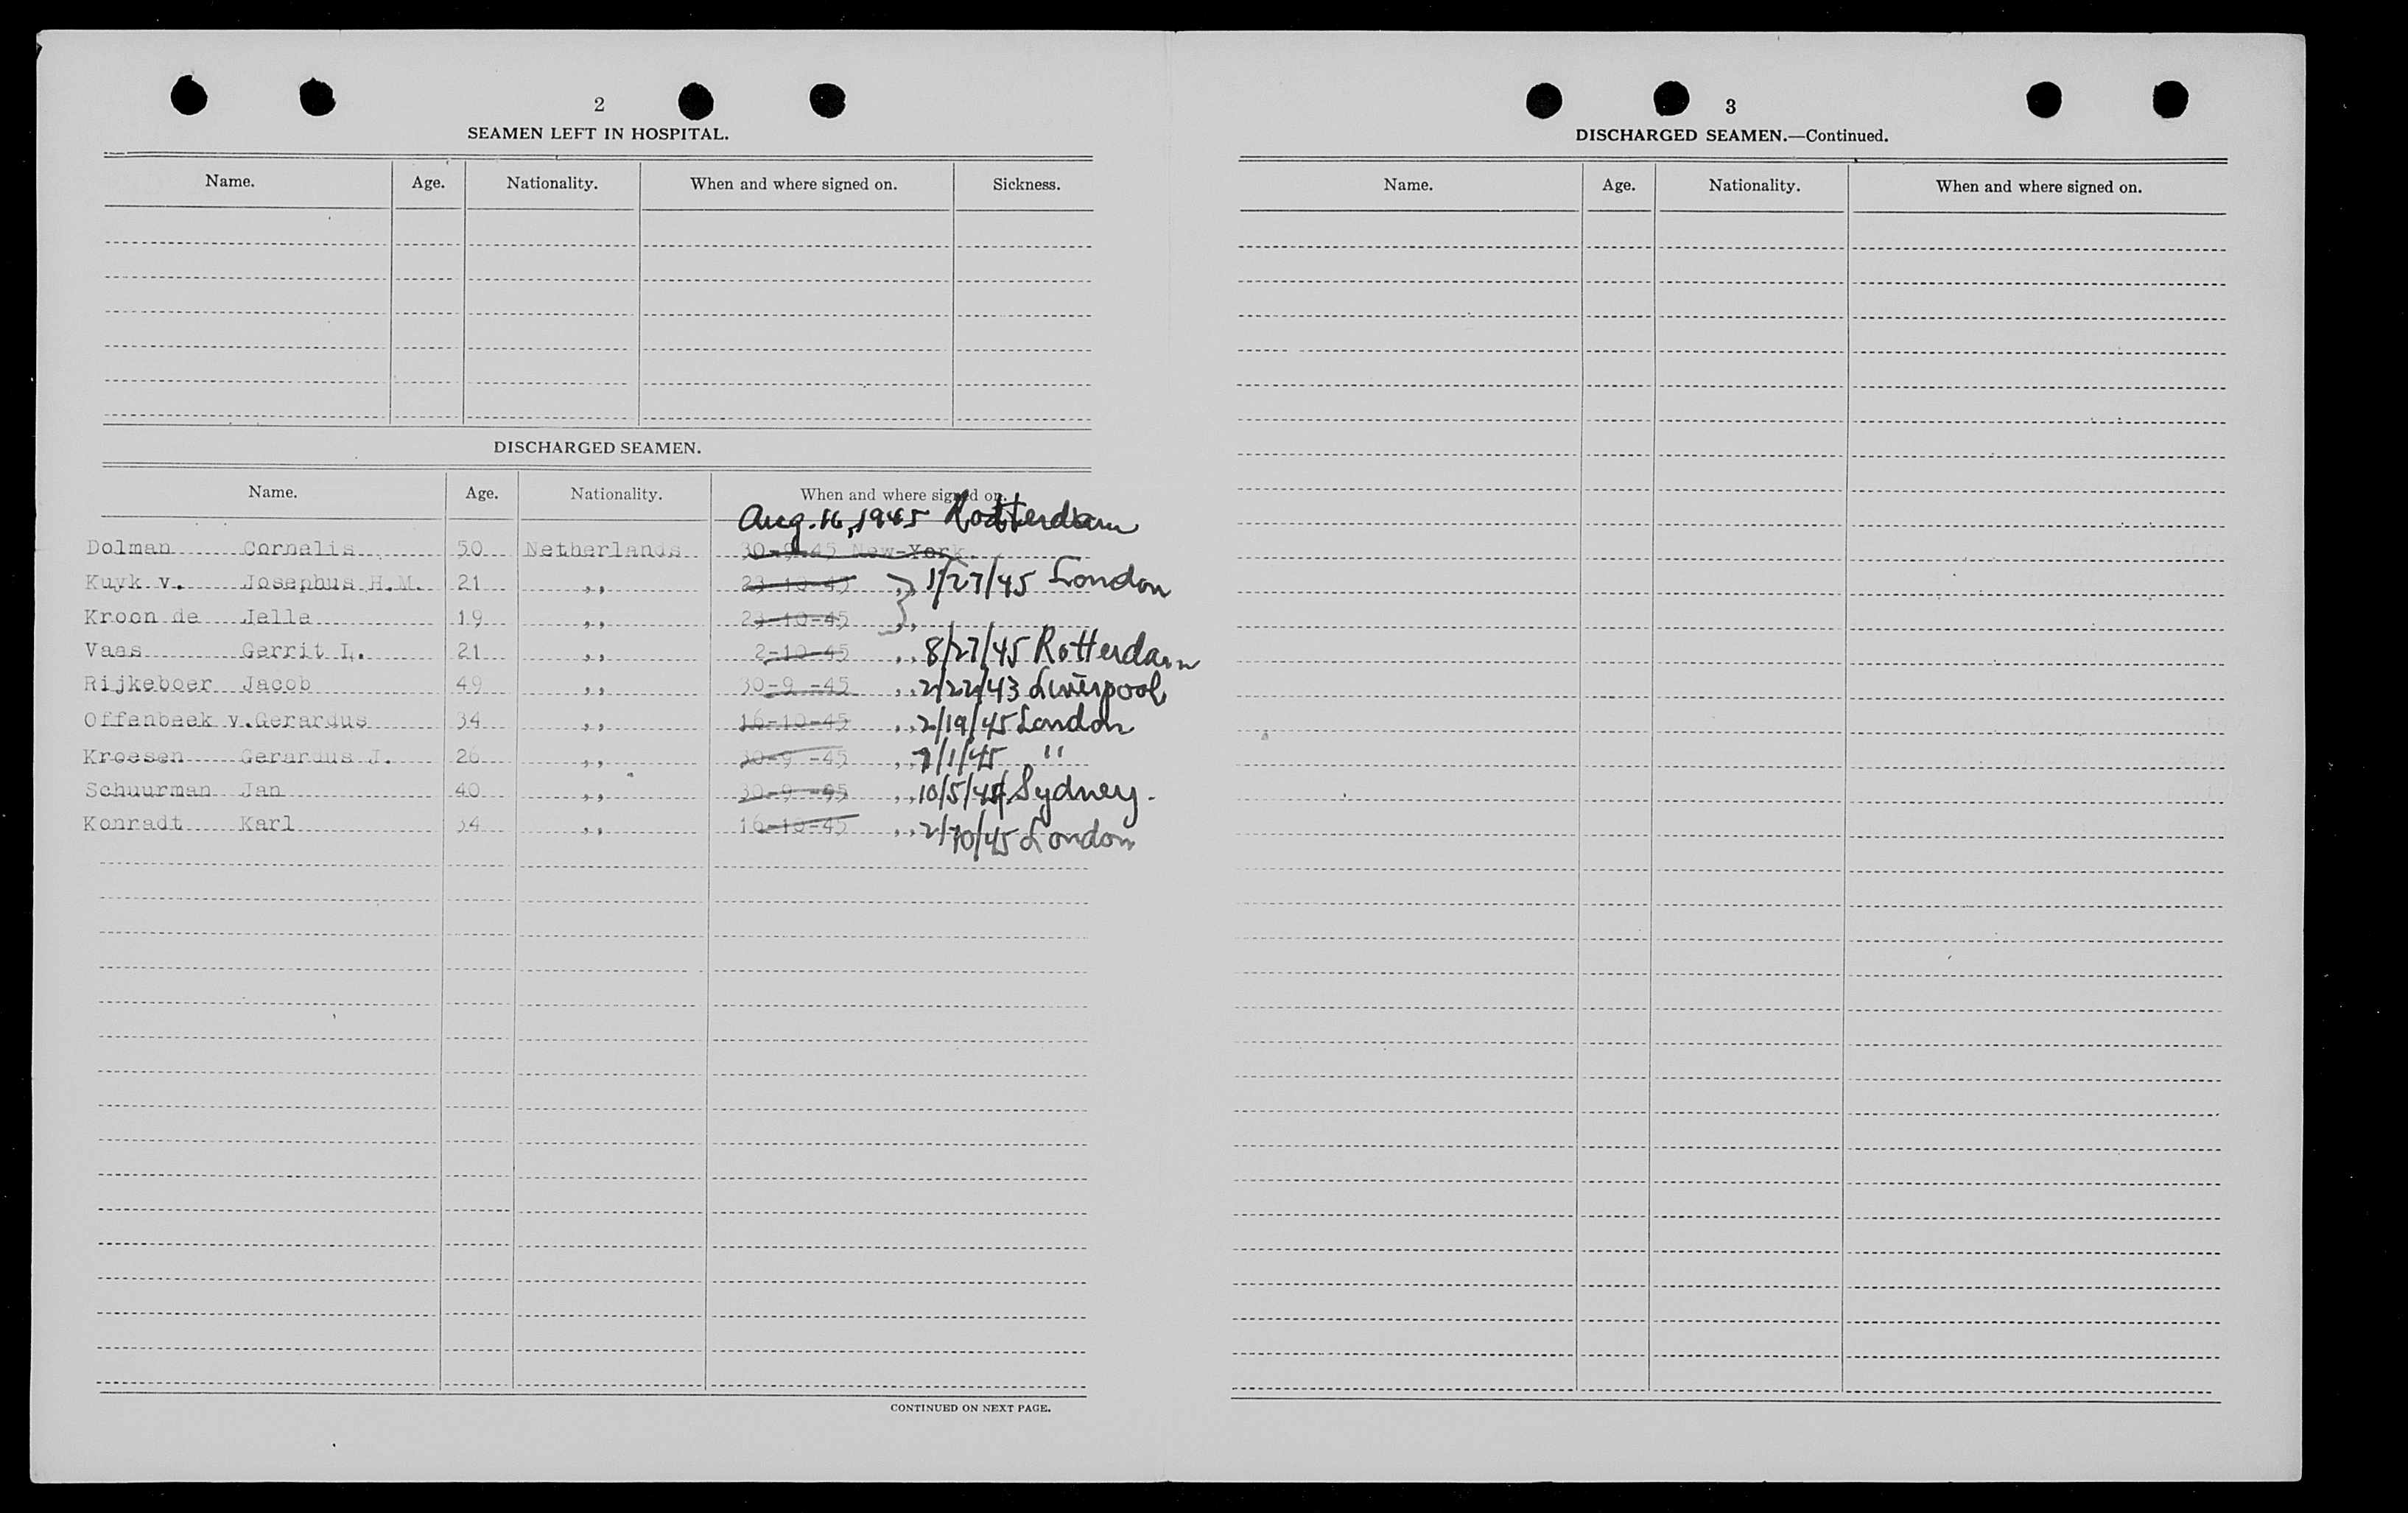 2
SEAMEN LEFT IN HOSPITAL.
Name. Age. Nationality. When and where signed on. Sickness.
DISCHARGED SEAMEN.
Name. Age. Nationality. When and where signed on.
Aug. 16, 1945 Rotterdam
Dolman Cornelis 50 Netherlands 30-9-45 New-York.
Kuyk v. Josephus H.M. 21 ,, 23-10-45 ,, } 1/27/45 London
Kroon de Jelle 19 ,, 23-10-45 ,,
Vaas Gerrit L. 21 ,, 2-10-45 ,, 8/27/45 Rotterdam
Rijkeboer Jacob 49 ,, 30-9 -45 ,, 2/22/43 Liverpool
Offenbeek v. Gerardus 34 ,, 16-10-45 ,, 2/19/45 London
Kroesen Gerardus J. 26 ,, 30-9 -45 ,, /1/45 "
Schuurman Jan 40 ,, 30-9 -45 ,, 10/5/44 Sydney.
Konradt Karl 34 ,, 16-10-45 ,, 2/ /45 London
CONTINUED ON NEXT PAGE.
3
DISCHARGED SEAMEN.—Continued.
Name. Age. Nationality. When and where signed on.